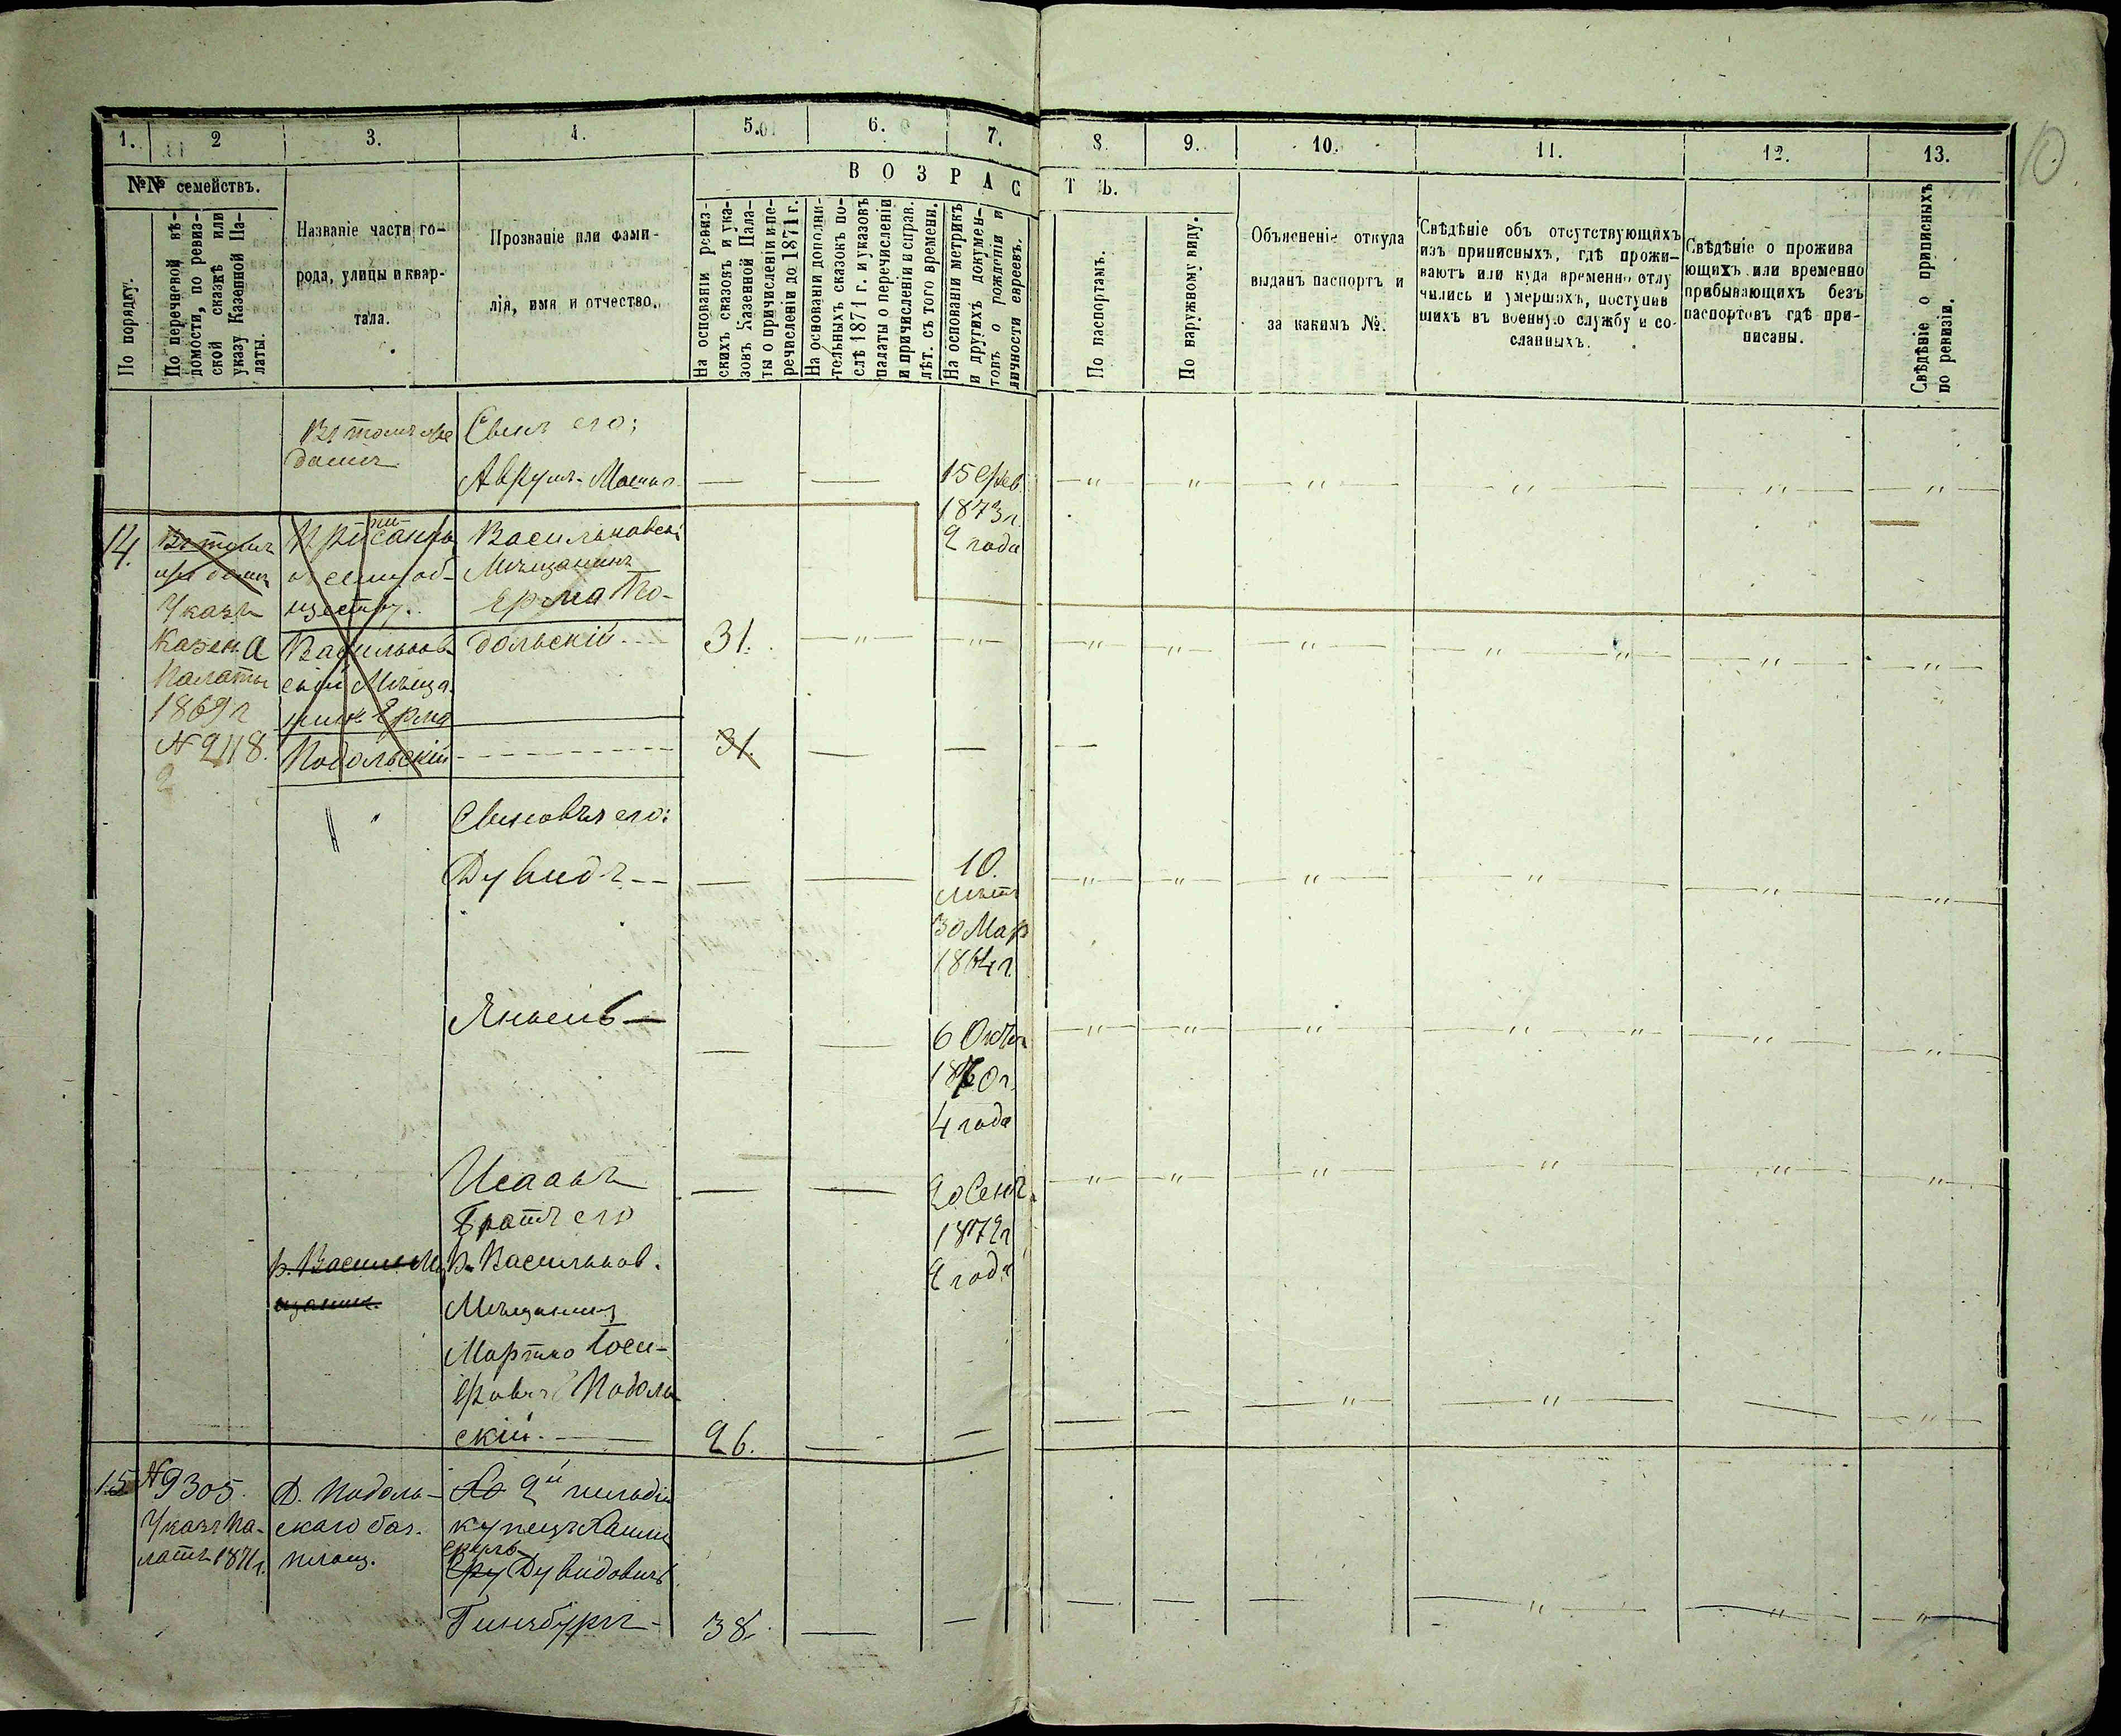 1.
2
3.
4.
5.
6.
7.
8.
9.
10.
11.
12.
13.
10
№№ семействъ.
По порядку.
По перечневой вѣ-
домости, по ревиз-
ской сказкѣ или
указу Казенной Па-
латы.
Названіе части го-
рода, улицы и квар-
тала.
Прозваніе или фами-
лія, имя и отчество.
ВОЗРАСТЪ.
На основаніи ревиз-
скихъ сказокъ и ука-
зовъ Казенной Пала-
ты о причисленіи и пе-
речисленіи до 1871 г.
На основаніи дополни-
тельныхъ сказокъ по-
слѣ 1871 г. и указовъ
палаты о перечисленіи
и причисленіи и справ.
лѣт. съ того времени.
На основаніи метрикъ
и другихъ докумен-
товъ о рожденіи и
личности евреевъ.
По паспортамъ.
По наружному виду.
Объясненіе откуда
выданъ паспортъ и
за какимъ №.
Свѣдѣніе объ отсутствующихъ
изъ приписныхъ, гдѣ прожи-
ваютъ или куда временно отлу
чились и умершихъ, поступив
шихъ въ военную службу и со-
сланныхъ.
Свѣдѣніе о прожива
ющихъ или временно
прибывающихъ безъ
паспортовъ гдѣ при-
писаны.
Свѣдѣніе о приписныхъ
по ревизіи.
Въ томъ же
домѣ
Сынъ его:
Аврумъ-Мошко
15 Фев.
1873 г.
2 года
14.
Въ томъ
же домѣ
Указъ
Казен.
Палаты
1869 г
№ 2118.
2
Приписаны
къ сему об-
ществу.
Васильков-
скій Мѣща-
нинъ Ерма
Подольскій
Васильковскі
Мѣщанинъ
Ерма По-
дольскій
31.
31.
Сыновья его:
Дувидъ
10.
лѣтъ
30 Мар
1864 г.
Янкель
6 Окт.
1870 г.
4 года
Исаакъ
20 Сент.
1872 г
2 года
Братъ его
Василь. Мѣ
щанин.
Васильков.
Мѣщанинъ
Мортко Іоси-
фовъ Подоль
скій.
26.
15
№ 9305.
Указъ Па-
латы 1871 г.
Д. Подоль-
скаго баз.
площ.
2й гильдіи
купецъ
Дувидовичъ
Гинзбургъ
38.